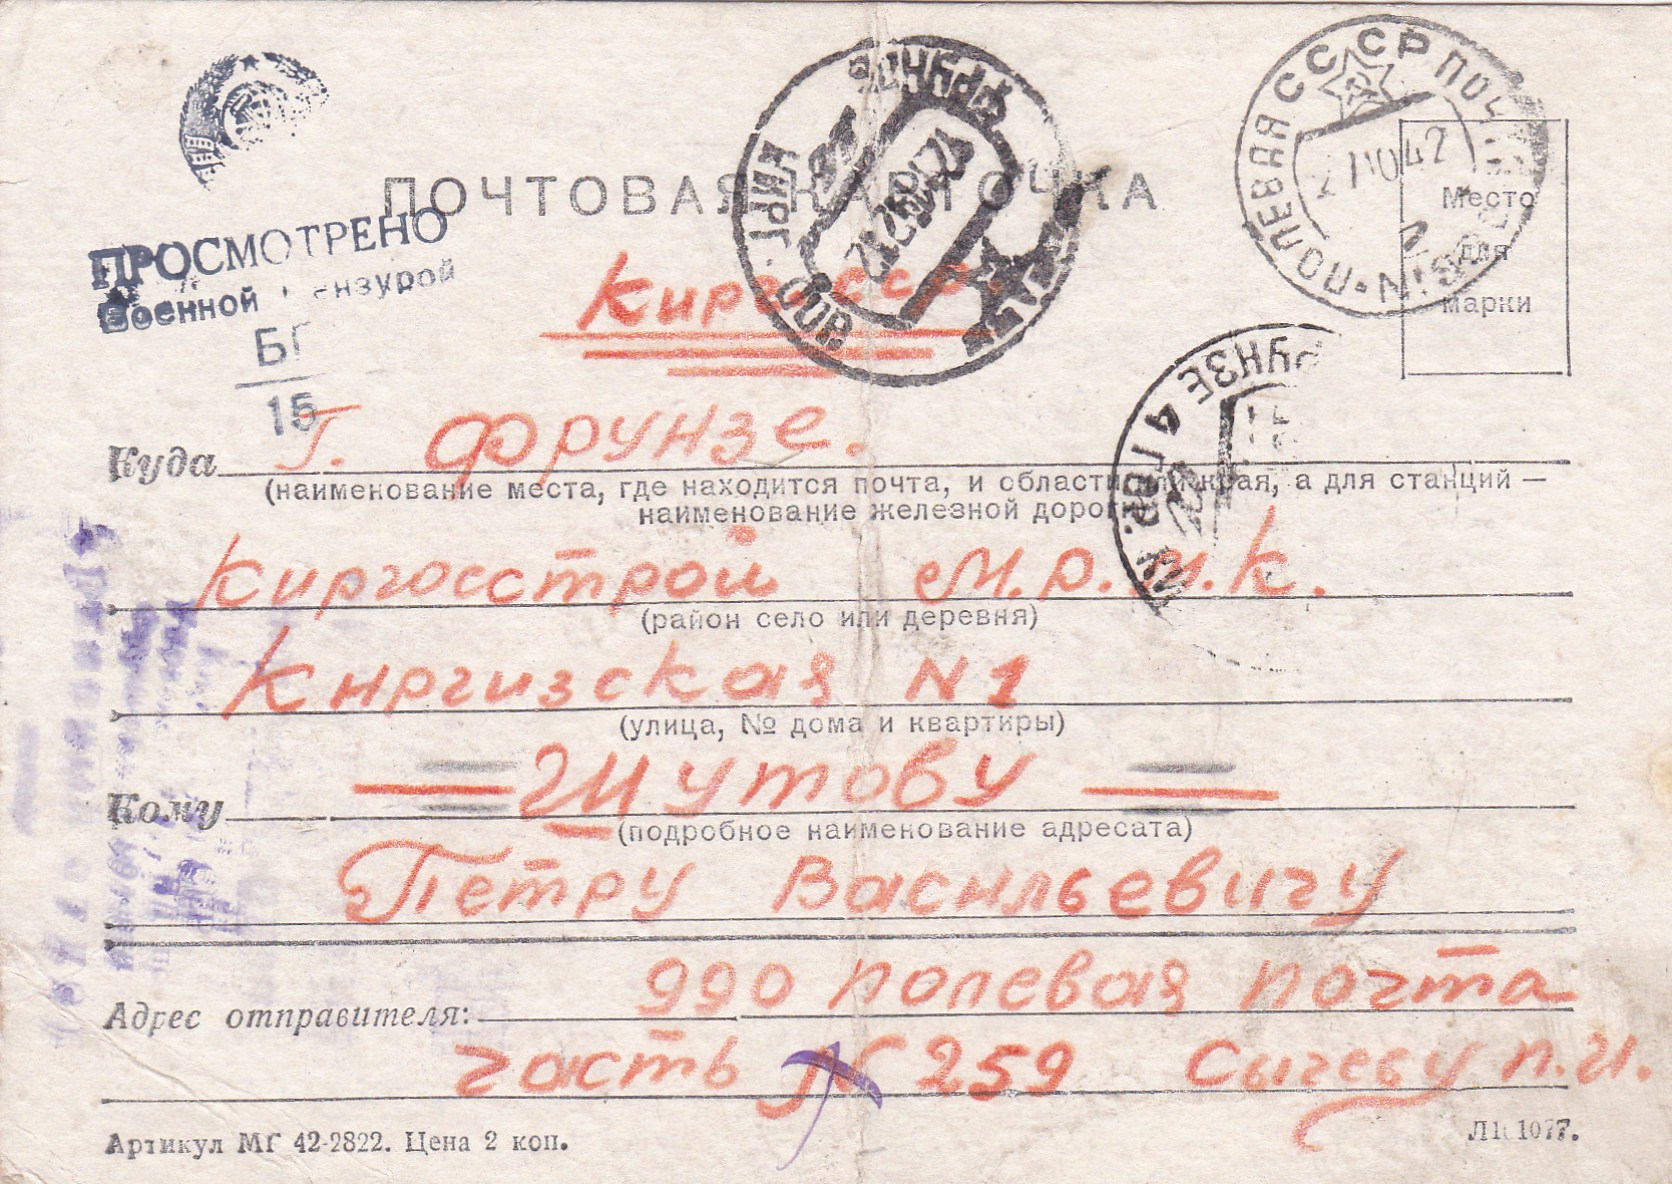 ПОЧТОВАЯ КАРТОЧКА
ПРОСМОТРЕНО
Военной Цензурой
БГ
15
ПОЛЕВАЯ СССР ПОЧТА
42
Место
для
марки
Кирг. ССР.
ФРУНЗЕ
КИРГ.
ФРУНЗЕ 4 ГОР.
Куда Г. Фрунзе.
(наименование места, где находится почта, и области или края, а для станций —
наименование железной дороги)
Киргосстрой М.Р.И.К.
(район село или деревня)
Киргизская N 1
(улица, № дома и квартиры)
Кому Шутову
(подробное наименование адресата)
Петру Васильевичу
Адрес отправителя: 990 полевая почта
часть № 259 Сычеву П.И.
Артикул МГ 42-2822. Цена 2 коп.
1077.